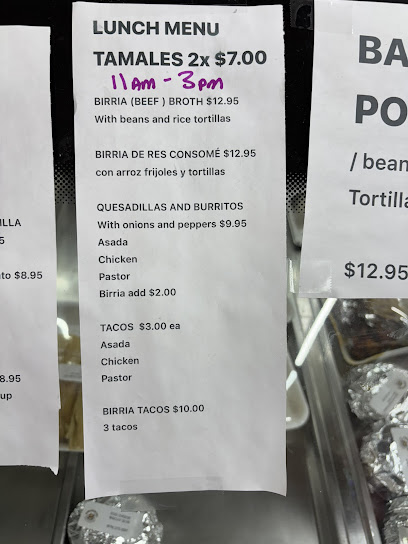 LUNCH MENU
TAMALES 2x $7.00
11AM - 3PM
BIRRIA (BEEF ) BROTH $12.95
With beans and rice tortillas
BIRRIA DE RES CONSOMÉ $12.95
con arroz frijoles y tortillas
QUESADILLAS AND BURRITOS
With onions and peppers $9.95
Asada
Chicken
Pastor
Birria add $2.00
TACOS $3.00 ea
Asada
Chicken
Pastor
BIRRIA TACOS $10.00
3 tacos
ILLA
5
to $8.95
8.95
up
BA
PO
/ bean
Tortilla
$12.95